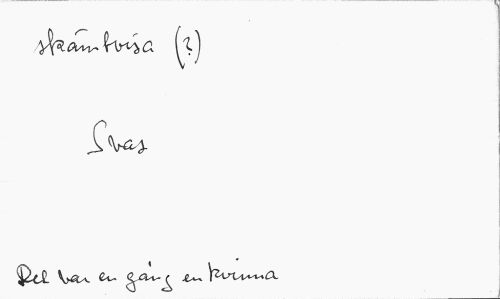 skämtvisa (?)
Svas
Det var en gång en kvinna